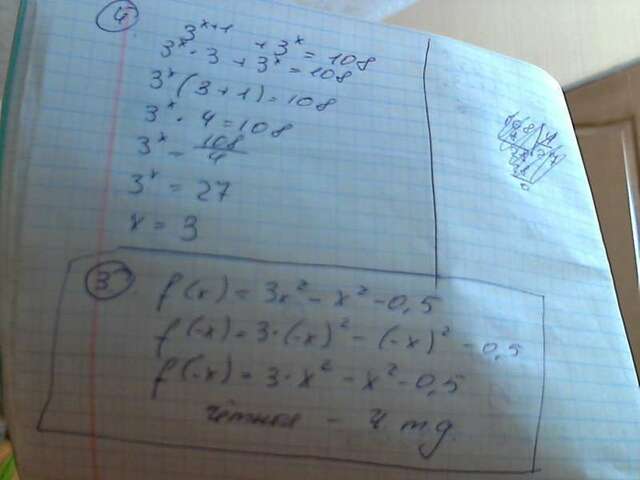 4
3^(x+1) + 3^x = 108
3^x · 3 + 3^x = 108
3^x (3 + 1) = 108
3^x · 4 = 108
3^x = 108/4
3^x = 27
x = 3
3
f(x) = 3x² - x² - 0,5
f(-x) = 3·(-x)² - (-x)² - 0,5
f(-x) = 3·x² - x² - 0,5
чётная - ч т д.